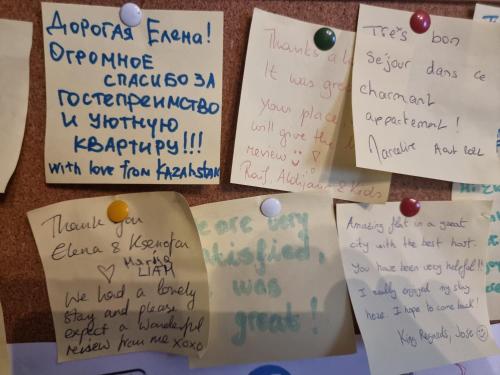 ДОРОГАЯ ЕЛЕНА!
ОГРОМНОЕ
СПАСИБО ЗА
ГОСТЕПРЕИМСТВО
И УЮТНУЮ
КВАРТИРУ!!!
with love from KAZAKHSTAN
Thanks a
It was gre
Your place
will give the
review
Rauf, & Kids
Très bon
Séjour dans ce
charmant
appartement!
Thank you
Elena &
LIAM
We had a lovely
stay and please
expect a wonderful
review from me xoxo
are very
satisfied,
was
great!
Amazing flat in a great
city with the best host.
You have been very helpful!!
I really enjoyed my stay
here. I hope to come back!
King Regards, Jose